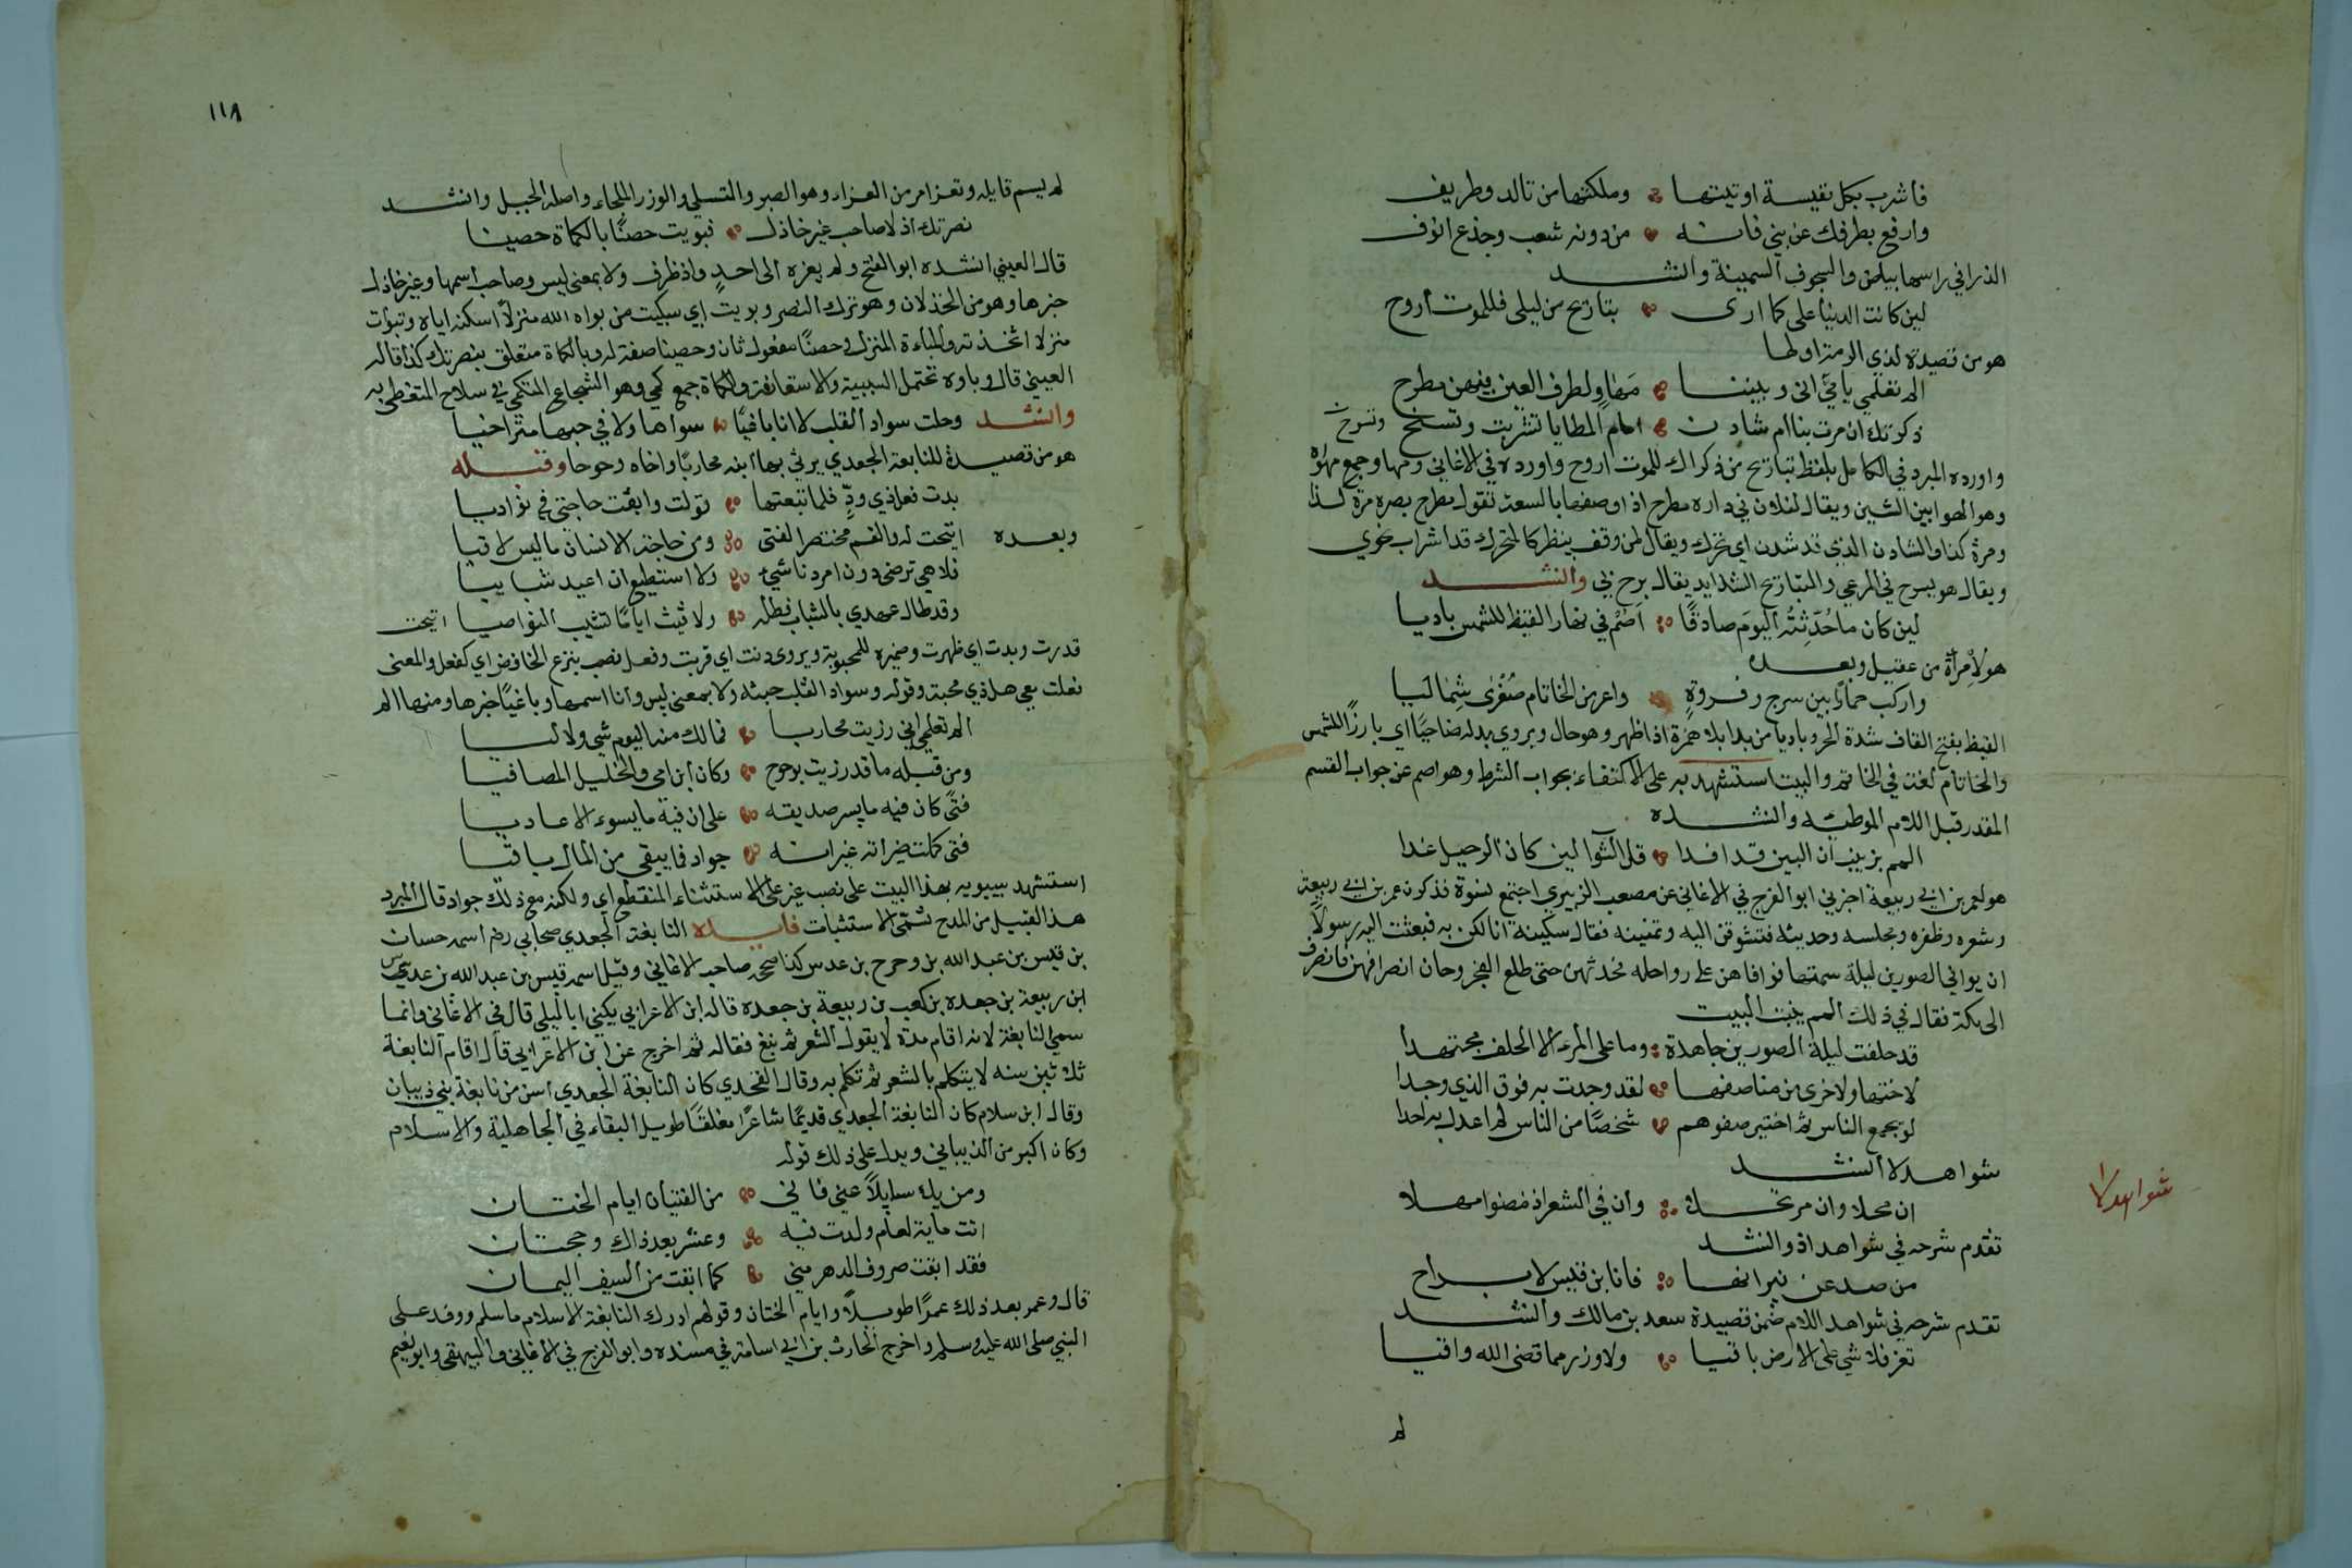 فأشرب بكل نفيسة اوتيتها وملكتها من تالد وطريف
وارفع بطرفك عن بني فانه من دونه شعب وجذع انوف
الذرا في راسها بياض والسجوف السمينة وانشد
لين كانت الدنيا على كما ارى بتاريح من ليلى فللموت أروح
هو من قصيدة لذي الرمة اولها
الم تعلمي يا مي انى وبيننا مهاو لطرف العين فيهن مطرح
ذكرتك ان مرت بنا ام شادن امام المطايا تشربت وتسنح
وتسرح
واورده المبرد في الكامل بلفظ تباريح من ذكراك للموت اروح واورده في الاغاني ومهاو جمع مهوه
وهو الهوا بين الشين ويقال لفلان في داره مطرح اذا وصفها بالسعة تقول مطرح بصره مرة لذا
ومرة كذا والشادن الذي قد شدن اي تحرك ويقال لمن وقف ينظر كالمتحرك قد اشراب نحوي
ويقال هو يسرح في المرعي والتباريح الشدايد يقال برح بي وانشد
لين كان ما حدثته اليوم صادقا اصم في نهار القيظ للشمس باديا
هو لامرأة من عقيل وبعده
واركب حمارا بين سرج وفروة واعر من الخاتام صغرى شماليا
القيظ بفتح القاف شدة الحر وباديا من بدا بلا همزة اذا ظهر وهو حال ويروي بدله ضاحيا اي بارزا للشمس
والخاتام لغة في الخاتم والبيت استشهد به على الاكتفاء بجواب الشرط وهو اصم عن جواب القسم
المقدر قبل اللام الموطئه وانشده
المم بزينب ان البين قد افدا قل الثوا لين كان الرحيل غدا
هو لعمر بن ابي ربيعة اخرج ابو الفرج في الاغاني عن مصعب الزبيري اجتمع نسوة فذكرن عمر بن ابي ربيعة
وشعره وظفره ومجلسه وحديثه فتشوقن اليه وتمنينه فقال سكينة انا لكن به فبعثت اليه رسولا
ان يوافي الصورين ليلة سمتها فوافاهن على رواحله فحدثهن حتى طلع الفجر وحان انصرافهن فانصرف
الى مكة فقال في ذلك المم بزينب البيت
قد حلفت ليلة الصورين جاهدة وما على المرء الا الحلف مجتهدا
لاختها ولاخرى من مناصفها لقد وجدت به فوق الذي وجدا
لو يجمع الناس ثم اختير صفوهم شخصا من الناس لم اعدل به احدا
شواهد لا انشد
شواهد لا
ان محلا وان مرتحلا وان في الشعر اذ مضوا مهلا
تقدم شرحه في شواهد اذ وانشد
من صد عن نيرانها فانا بن قيس لا براح
تقدم شرحه في شواهد اللام ضمن قصيدة سعد بن مالك وانشد
تعز فلا شي على الارض باقيا ولا وزر مما قضى الله واقيا
لم
١١٨
لم يسم قايله وتعز امر من العزاء وهو الصبر والتسلي والوزر الملجاء واصله الجبل وانشد
نصرتك اذ لا صاحب غير خاذل فبويت حصنا بالكماة حصينا
قال العيني انشده ابو الفتح ولم يعزه الى احد واذ ظرف ولا بمعنى ليس وصاحب اسمها وغير خاذل
خبرها وهو من الخذلان وهو ترك النصر وبويت اي سكيت من بواه الله منزلا اسكنه اياه وتبوات
منزلا اتخذته والمباءة المنزل وحصنا مفعول ثان وحصينا صفة له وبالكماة متعلق بنصرتك كذا قاله
العيني قال وباوه تحتمل السببية والاستعانة والكماة جمع كمي وهو الشجاع المتكمي في سلاح المتغطى به
وانشد وحلت سواد القلب لا انا باغيا سواها ولا في حبها متراخيا
هو من قصيدة للنابغة الجعدي يرثي بها ابنه محاربا واخاه وحوحا وقبله
بدت فعل ذي ود فلما تبعتها تولت وابقت حاجتي في فواديا
وبعده اتيحت له والغم محتضر الفتى ومن حاجة الانسان ما ليس لاقيا
فلا هي ترضى دون امرد ناشيء ولا استطيع ان اعيد شبابيا
وقد طال عهدي بالشباب فظله ولاقيت اياما تشيب النواصيا اتيحت
قدرت وبدت اي ظهرت وضميره للمحبوبة ويروى دنت اي قربت وفعل نصب بنزع الخافض اي كفعل والمعنى
فعلت بي فعل ذي محبة وقوله وسواد القلب حبته ولا بمعنى ليس وانا اسمها وباغيا خبرها ومنها الم
الم تعلمي اني رزيت محاربا فمالك منه اليوم شي ولا ليا
ومن قبله ما قد رزيت بوحوح وكان ابن امي والخليل المصافيا
فتى كان فيه ما يسر صديقه على ان فيه ما يسوء الاعاديا
فتى كملت خيراته غير انه جواد فما يبقي من المال باقيا
استشهد سيبويه بهذا البيت على نصب غير على الاستثناء المنقطع اي ولكنه مع ذلك جواد قال المبرد
هذا القبيل من المدح تسمى الاستثبات فايدة النابغة الجعدي صحابي رضم اسمه حسان
بن قيس بن عبد الله بن وحوح بن عدس كذا صححه صاحب الاغاني وقيل اسمه قيس بن عبد الله بن عدس
ابن ربيعة بن جعده بن كعب بن ربيعة بن جعدة قاله ابن الاعرابي يكني ابا ليلي قال في الاغاني وانما
سمي النابغة لانه اقام مدة لا يقول الشعر ثم نبغ فقاله ثم اخرج عن ابن الاعرابي قال اقام النابغة
ثلثين سنه لا يتكلم بالشعر ثم تكلم به وقال القحدي كان النابغة الجعدي اسن من نابغة بني ذبيان
وقال ابن سلام كان النابغة الجعدي قديما شاعرا مغلقا طويل البقاء في الجاهلية والاسلام
وكان اكبر من الذبياني ويدل على ذلك قوله
ومن يك سايلا عني فاني من الفتيان ايام الختان
اتت ماية لعام ولدت فيه وعشر بعد ذاك وحجتان
فقد ابقت صروف الدهر مني كما ابقت من السيف اليمان
قال وعمر بعد ذلك عمرا طويلا وايام الختان وقولهم ادرك النابغة الاسلام ما سلم ووفد على
النبي صلى الله عليه وسلم واخرج الحارث بن ابي اسامة في مسنده وابو الفرج في الاغاني والبيهقي وابو نعيم